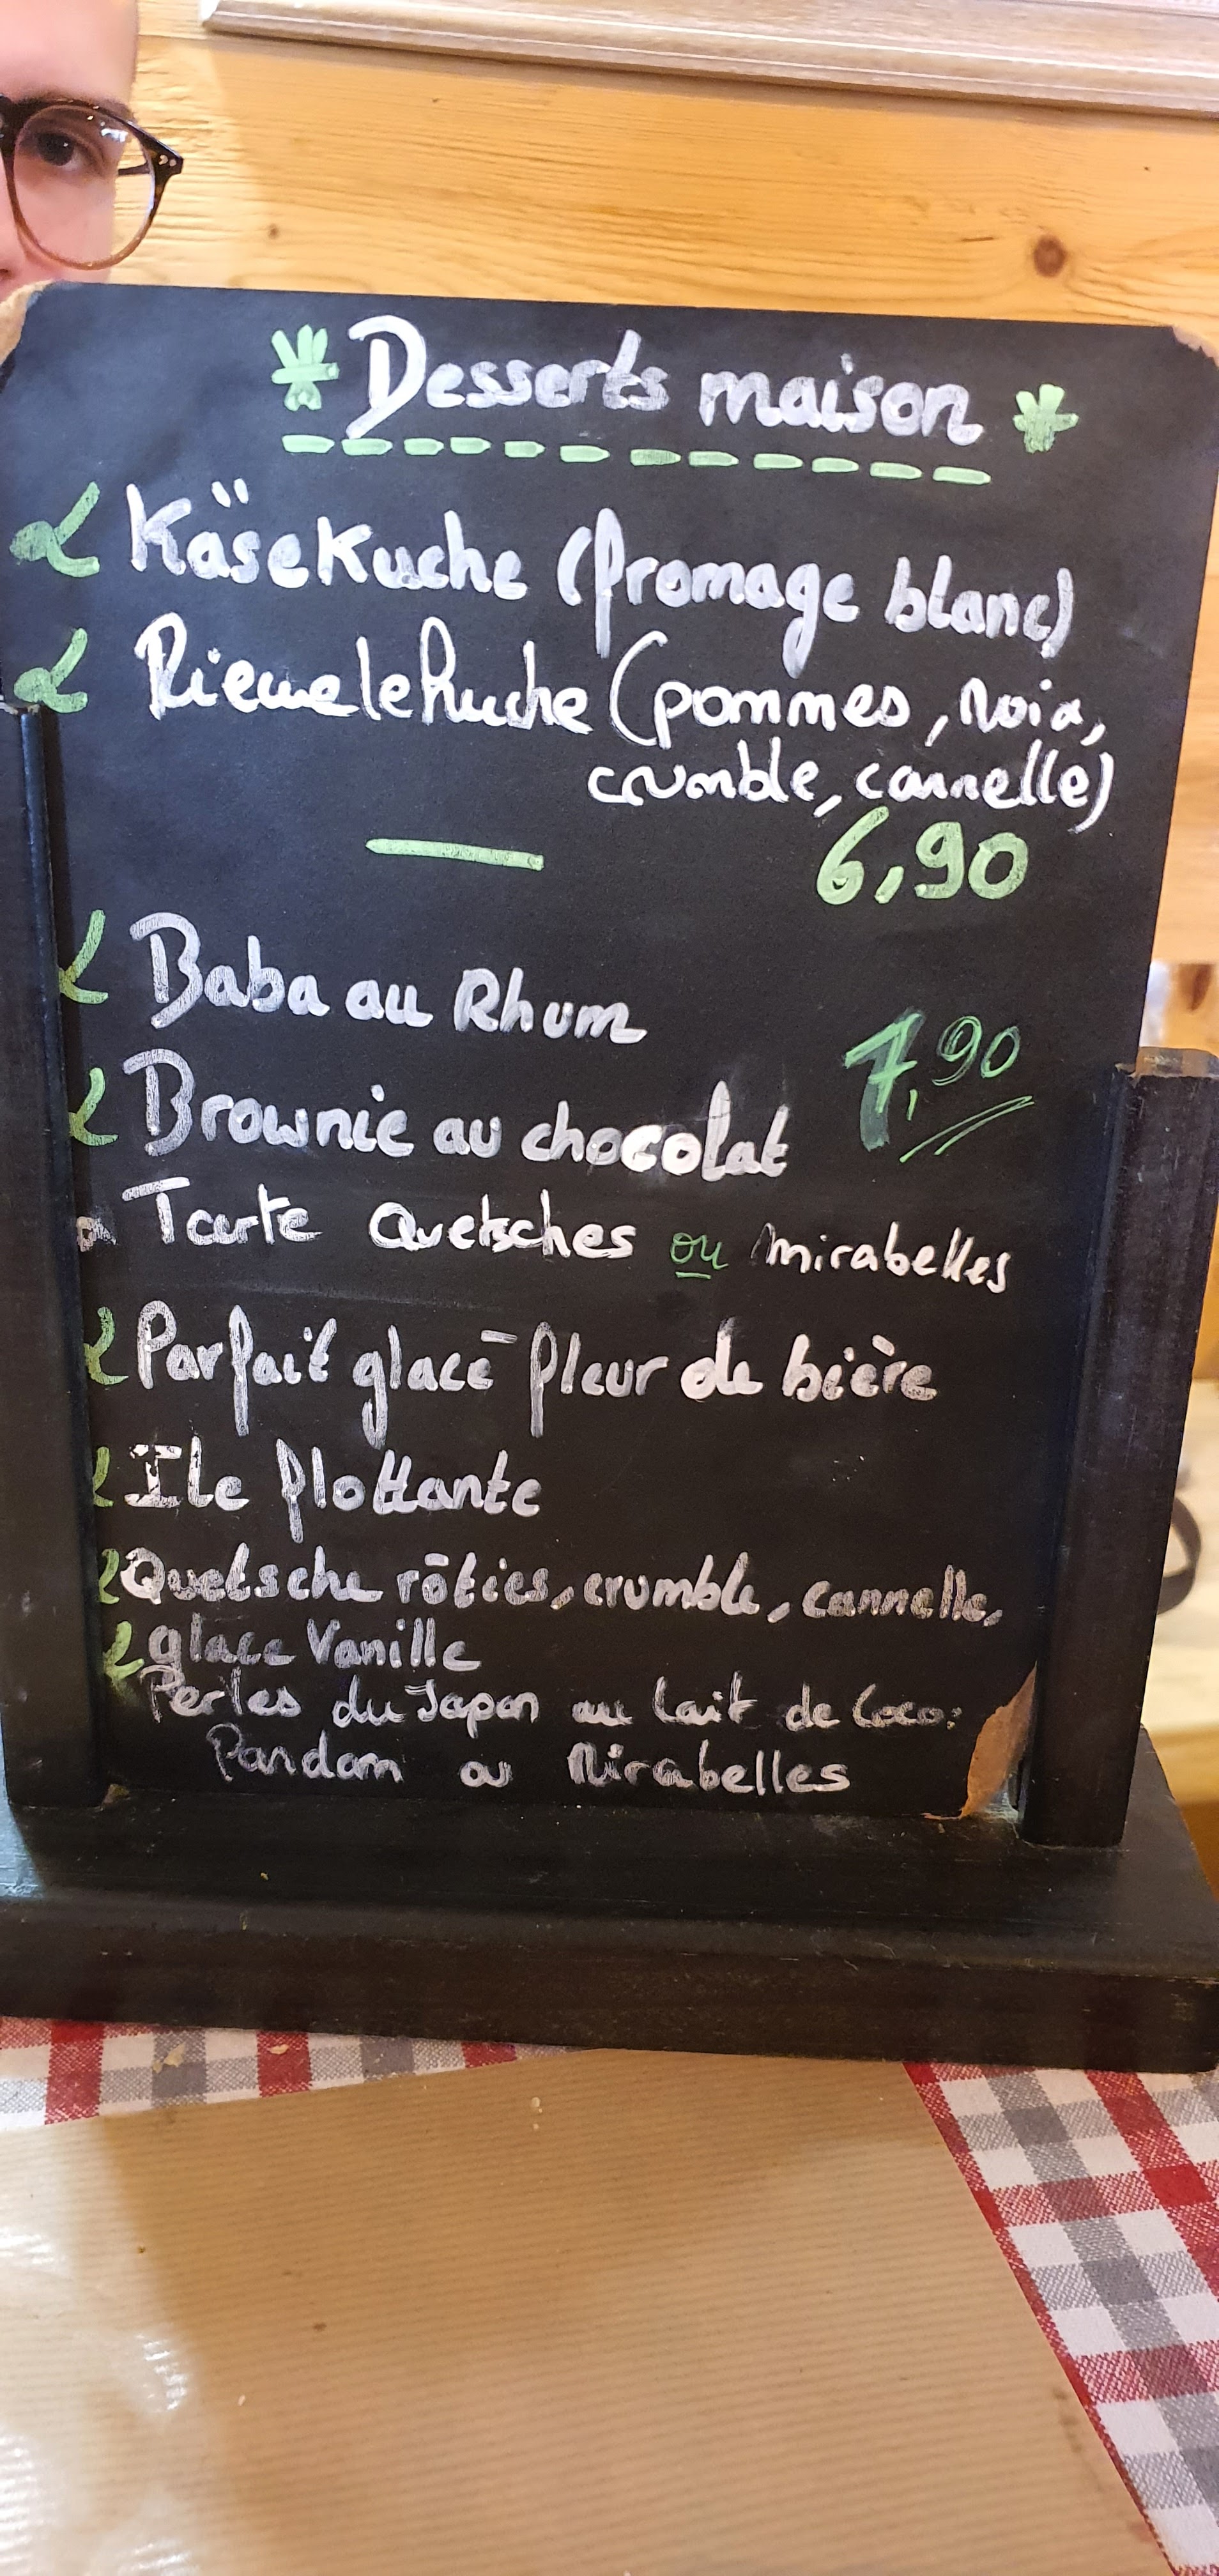 Desserts maison
KäseKuche (fromage blanc)
RieweleKuche (pommes, noix,
crumble, cannelle)
6,90
Baba au Rhum
7,90
Brownie au chocolat
Tarte Quetsches ou mirabelles
Parfait glacé fleur de bière
Ile flottante
Quetsche rôties, crumble, cannelle,
glace Vanille
Perles du Japon au lait de Coco:
Pandan ou Mirabelles